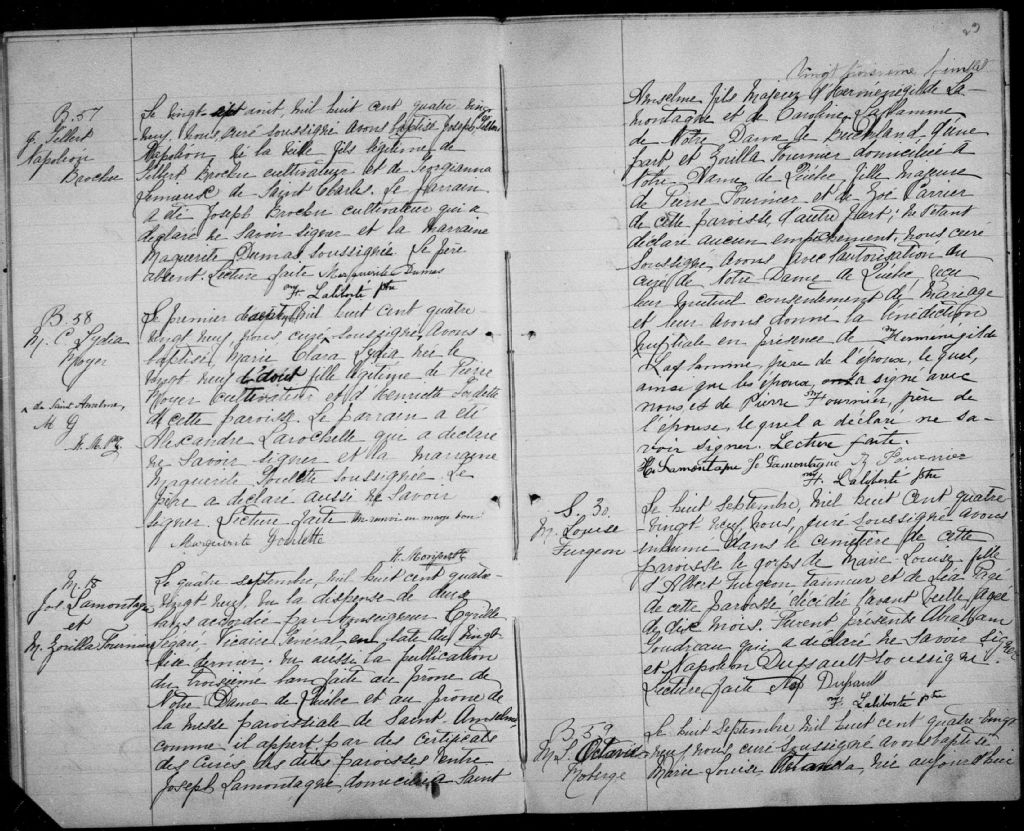 B. 57
J. Gilbert
Napoléon
Brochu
Le vingt-sept août, mil huit cent quatre vingt
neuf, nous curé soussigné avons baptisé Joseph Gilbert
Napoléon né la veille fils légitime de
Gilbert Brochu cultivateur et de Georgianna
Lemieux de Saint Charles. Le parrain
a été Joseph Brochu cultivateur qui a
déclaré ne savoir signer et la marraine
Marguerite Dumas soussignée. Le père
absent. Lecture faite Marguerite Dumas
F. Laliberté ptre
B. 58
M. C. Lydia
Moyer
de Saint Anselme,
M G
H. M. Ptre
Le premier septembre mil huit cent quatre
vingt neuf, nous curé soussigné avons
baptisé Marie Clara Lydia née le
vingt neuf d'août fille légitime de Pierre
Moyer cultivateur et d'Henriette Goulette
de cette paroisse. Le parrain a été
Alexandre Larochelle qui a déclaré
ne savoir signer et la marraine
Marguerite Goulette soussignée. Le
père a déclaré aussi ne savoir
signer. Lecture faite Un renvoi en marge bon
Marguerite Goulette
M. 18
Jos. Lamontagne
et
M. Zoïlla Fournier
Le quatre septembre, mil huit cent quatre-
vingt-neuf, vu la dispense de deux
bans accordée par Monseigneur Cyrille
Légaré Vicaire Général en date du vingt
dernier. Vu aussi la publication
du troisième ban faite au prône de
Notre Dame de Québec et au prône de
la messe paroissiale de Saint Anselme
comme il appert par des certificats
des Curés des dites paroisses entre
Joseph Lamontagne, domicilié à Saint
23
Vingt troisième feuillet
Anselme fils majeur d'Herménégilde La-
montagne et de Caroline Laflamme
de Notre Dame de Buckland d'une
part et Zoïlla Fournier domiciliée à
Notre Dame de Québec fille majeure
de Pierre Fournier et de Zoé Carrier
de cette paroisse, d'autre part; ne s'étant
déclaré aucun empêchement, nous curé
soussigné avons avec l'autorisation du
curé de Notre Dame de Québec reçu
leur mutuel consentement de mariage
et leur avons donné la bénédiction
nuptiale en présence de Herménégilde
père de l'époux, lequel,
ainsi que les époux, a signé avec
nous, et de Pierre Fournier, père de
l'épouse, lequel a déclaré ne sa-
voir signer. Lecture faite.
H. Lamontagne J. Lamontagne Z. Fournier
F. Laliberté ptre
S. 30.
M. Louise
Turgeon
Le huit septembre, mil huit cent quatre
-vingt neuf, nous, curé soussigné avons
inhumé dans le cimetière de cette
paroisse le corps de Marie Louise, fille
d'Albert Turgeon tanneur et de Léa Pagé
de cette paroisse, décédée l'avant veille, agée
de dix mois. Furent présents Abraham
Goudreau qui a déclaré ne savoir signer
et Napoléon Dussault soussigné.
Lecture faite Nap Dussault
F. Laliberté ptre
B. 59
M. L. Octavie
Roberge
Le huit septembre mil huit cent quatre vingt
neuf, nous curé soussigné avons baptisé
Marie Louise née aujourd'hui